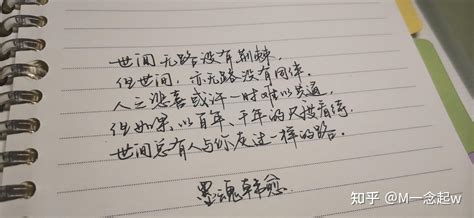 世间无路没有荆棘，
但世间，亦无路没有同伴。
人之悲喜或许一时难以共通，
但如果，以百年、千年的尺度看待，
世间总有人与你走过一样的路。
墨魂韩愈
知乎 @M一念起w